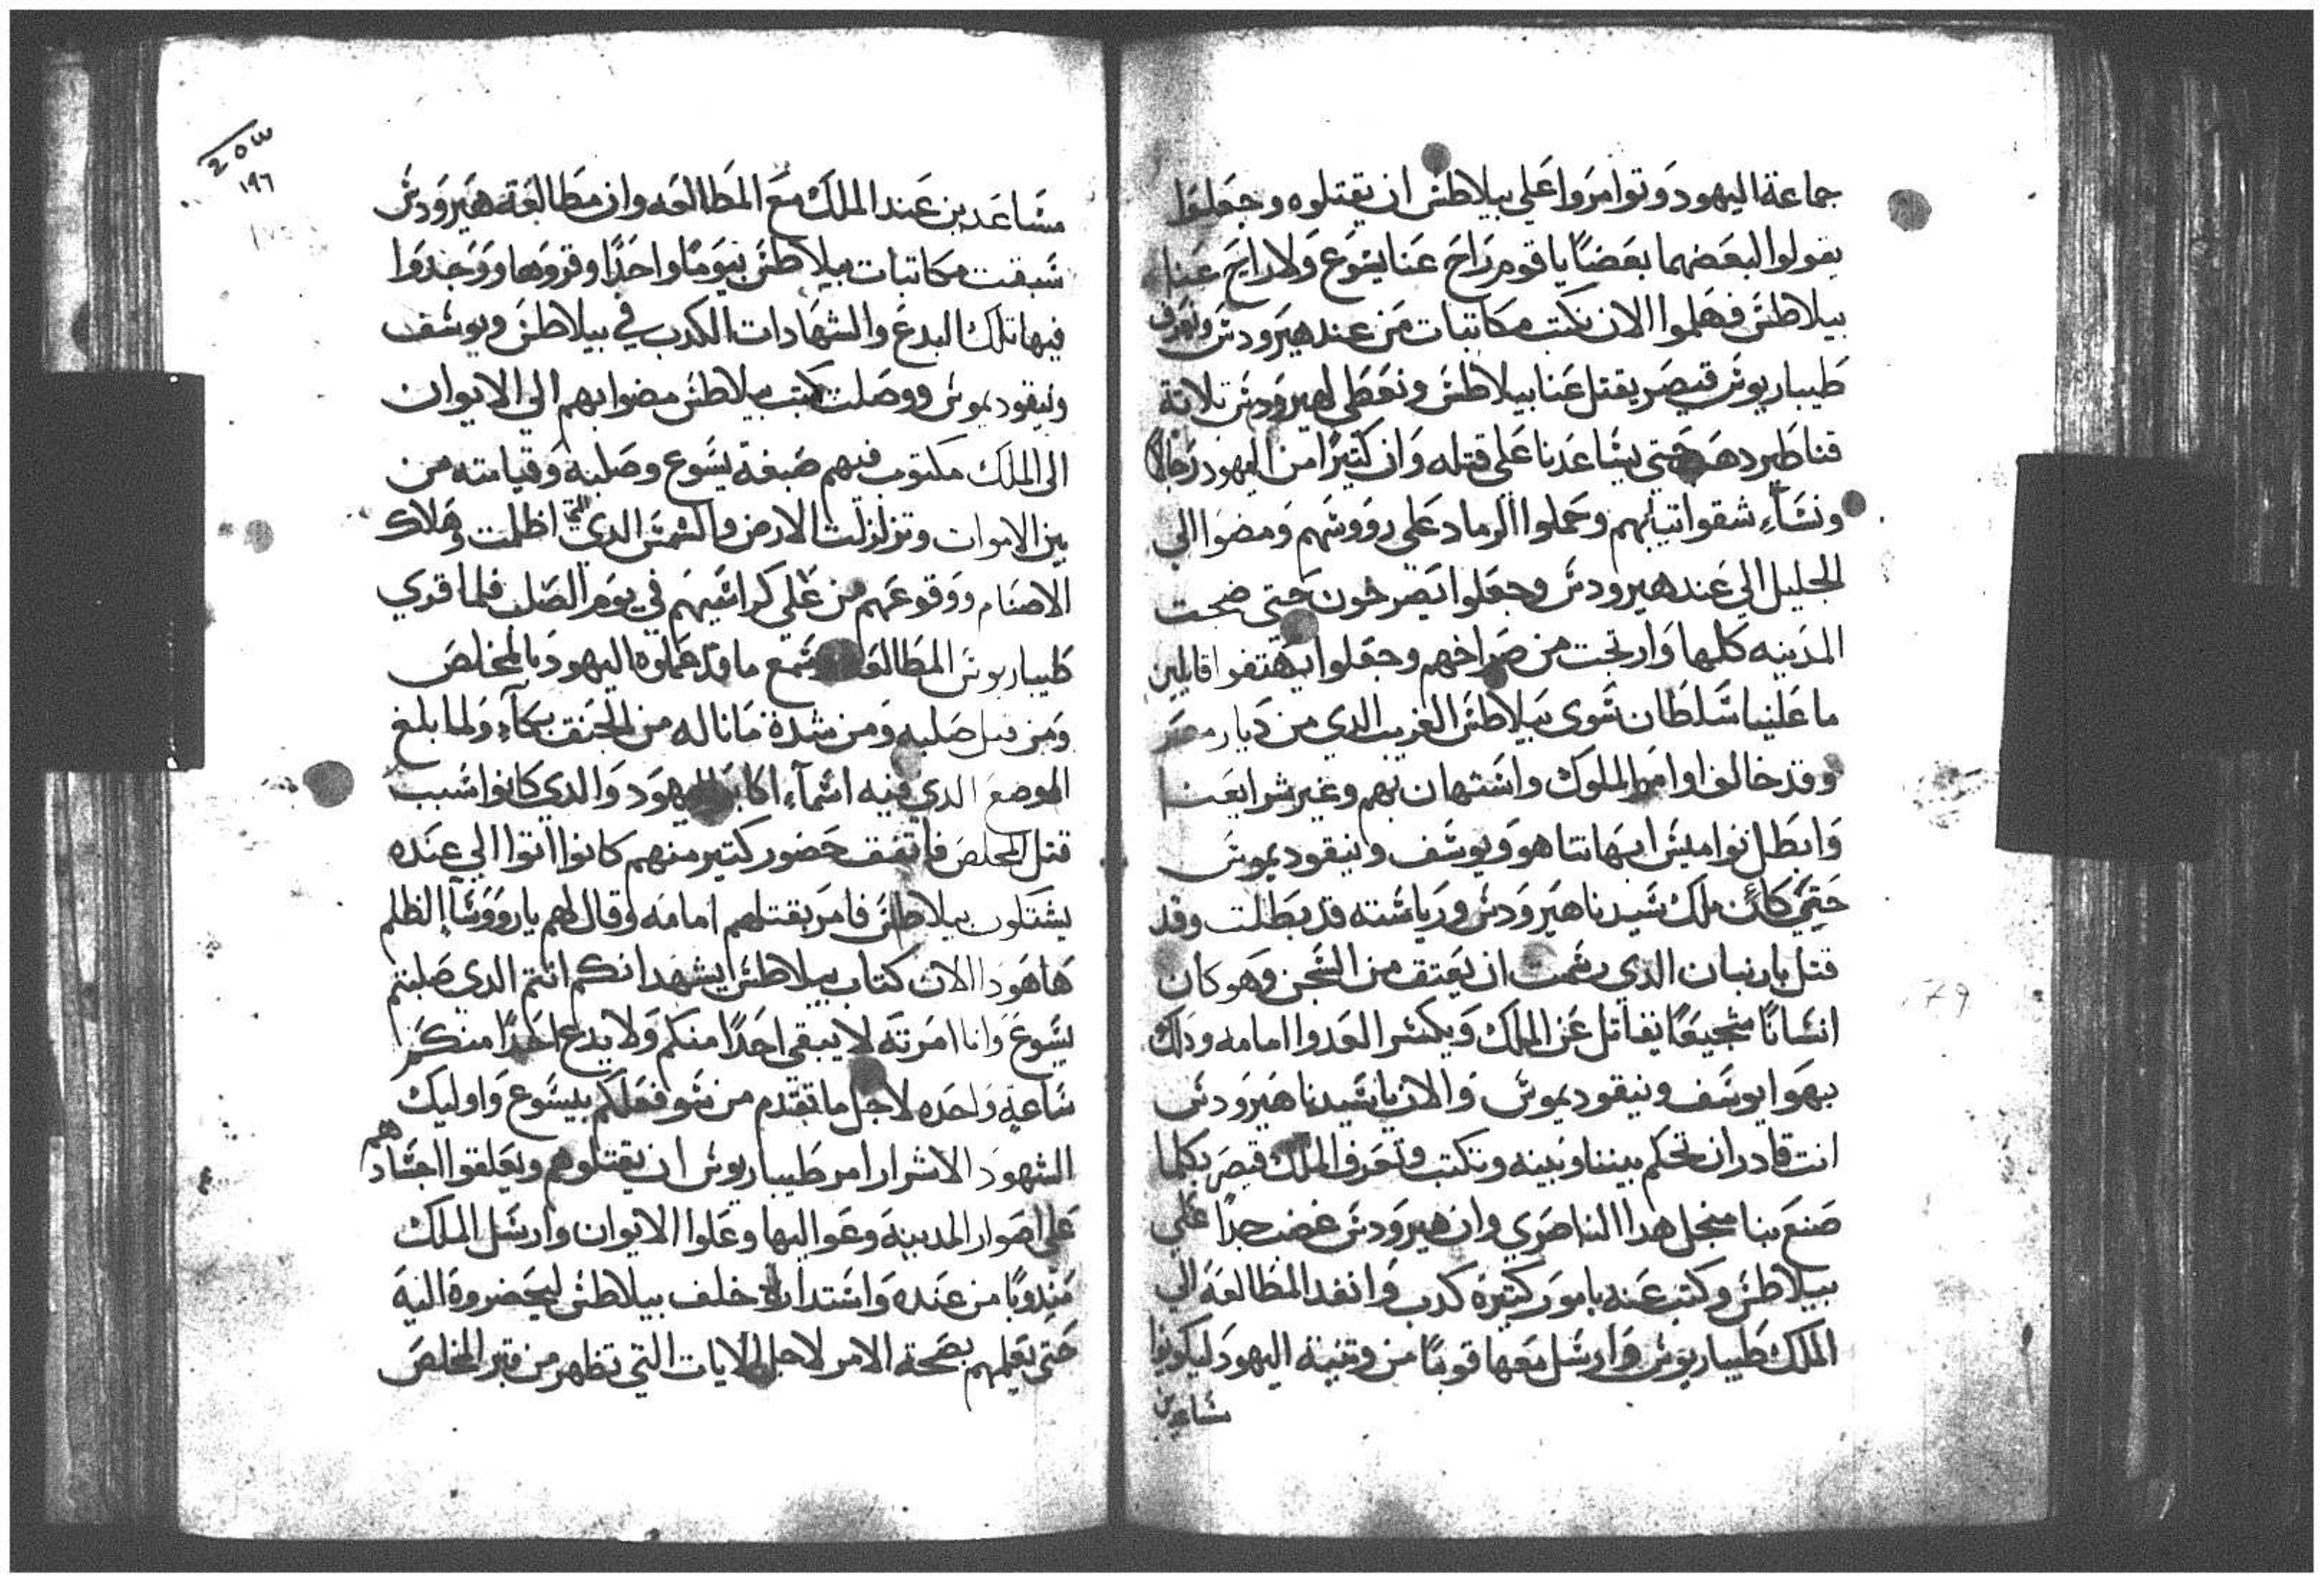 جماعة اليهود وتوامروا علي بيلاطس ان يقتلوه وجعلوا
يقولوا لبعضهما بعضًا يا قوم راح عنا يسوع ولا راح عنا
بيلاطس فهلموا الان نكتب مكاتبات من عند هيرودس ونعرف
طيباريوس قيصر يقتل عنا بيلاطس ونعطي لهيرودس تلاتة
قناطير دهب حتي يساعدنا علي قتله وان كتيرًا من اليهود رجالا
ونساء شقوا تيابهم وحملوا الرماد علي رووسهم ومضوا الي
الجليل الي عند هيرودس وجعلوا يصرخون حتي ضجت
المدينه كلها وارتجت من صراخهم وجعلوا يهتفوا قايلين
ما علينا سلطان سوى بيلاطس الغريب الدي من ديار مصر
وقد خالف اوامر الملوك واستهان بهم وغير شرايعنا
وابطل نواميس ابهاتنا هو ويوسف ونيقوديموس
حتي كان ملك سيدنا هيرودس ورياسته قد بطلت وقد
قتل باربان الدي رسمت ان يعتق من السجن وهو كان
انسانًا شجيعًا يقاتل عن الملك ويكسر العدوا امامه ودلك
بهوا يوسف ونيقوديموس والان يا سيدنا هيرودس
انت قادر ان تحكم بيننا وبينه وتكتب وتعرف الملك قيصر بكلما
صنع بنا منجل هدا الناصري وان هيرودس غضب جدًا علي
بيلاطس وكتب عنه بامور كتيرة كدب وانفد المطالعة الي
الملك طيباريوس وارسل معها قومًا من وقتيه اليهود ليكونوا
مساعدين
203
١٩٦
مساعدين عند الملك مع المطالعه وان مطالعة هيرودس
سبقت مكاتبات بيلاطس بيومًا واحدًا وقروها ووجدوا
فيها تلك البدع والشهادات الكدب في بيلاطس ويوسف
ونيقوديموس ووصلت كتب بيلاطس مضوا بهم الي الايوان
الى الملك مكتوب فيهم صبغة يسوع وصلبه وقيامته من
بين الاموات وتزلزلت الارض والشمس الدي اظلمت وهلاك
الاصنام ووقوعهم من علي كراسيهم في يوم الصلب فلما قري
طيباريوس المطالعه وسمع ما قد عملوه اليهود بالمخلص
ومن قبل صلبه ومن شدة ما ناله من الحنق بكاء ولما بلغ
الموضع الدي فيه اسماء اكابر اليهود والدي كانوا سبب
قتل المخلص فاتفق حضور كتير منهم كانوا اتوا الي عنده
يشتكون بيلاطس فامر بقتلهم امامه وقال لهم يا رووسا الظلم
ها هودا الان كتاب بيلاطس يشهد انكم انتم الدي صلبتم
يسوع وانا امرته لا يبقي احدًا منكم ولا يدع احدًا منكم
ساعة واحده لاجل ما تقدم من سو فعلكم بيسوع واوليك
الشهود الاشرار امر طيباريوس ان يقتلوهم ويعلقوا اجسادهم
علي اصوار المدينه وعوا اليها وعلوا الايوان وارسل الملك
مندوبًا من عنده واستدار خلف بيلاطس ليحضروه اليه
حتى يعلمهم بصحة الامر لاجل الايات التي تظهر من قبر المخلص
79